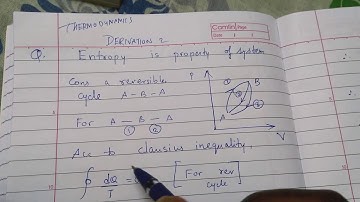 THERMODYNAMICS
DERIVATION 2
Q. Entropy is property of system
Cons a reversible
cycle A - B - A
For A - B - A
① ②
P
B
A
V
Acc to clausius inequality,
∮ dQ/T = [For rev cycle]